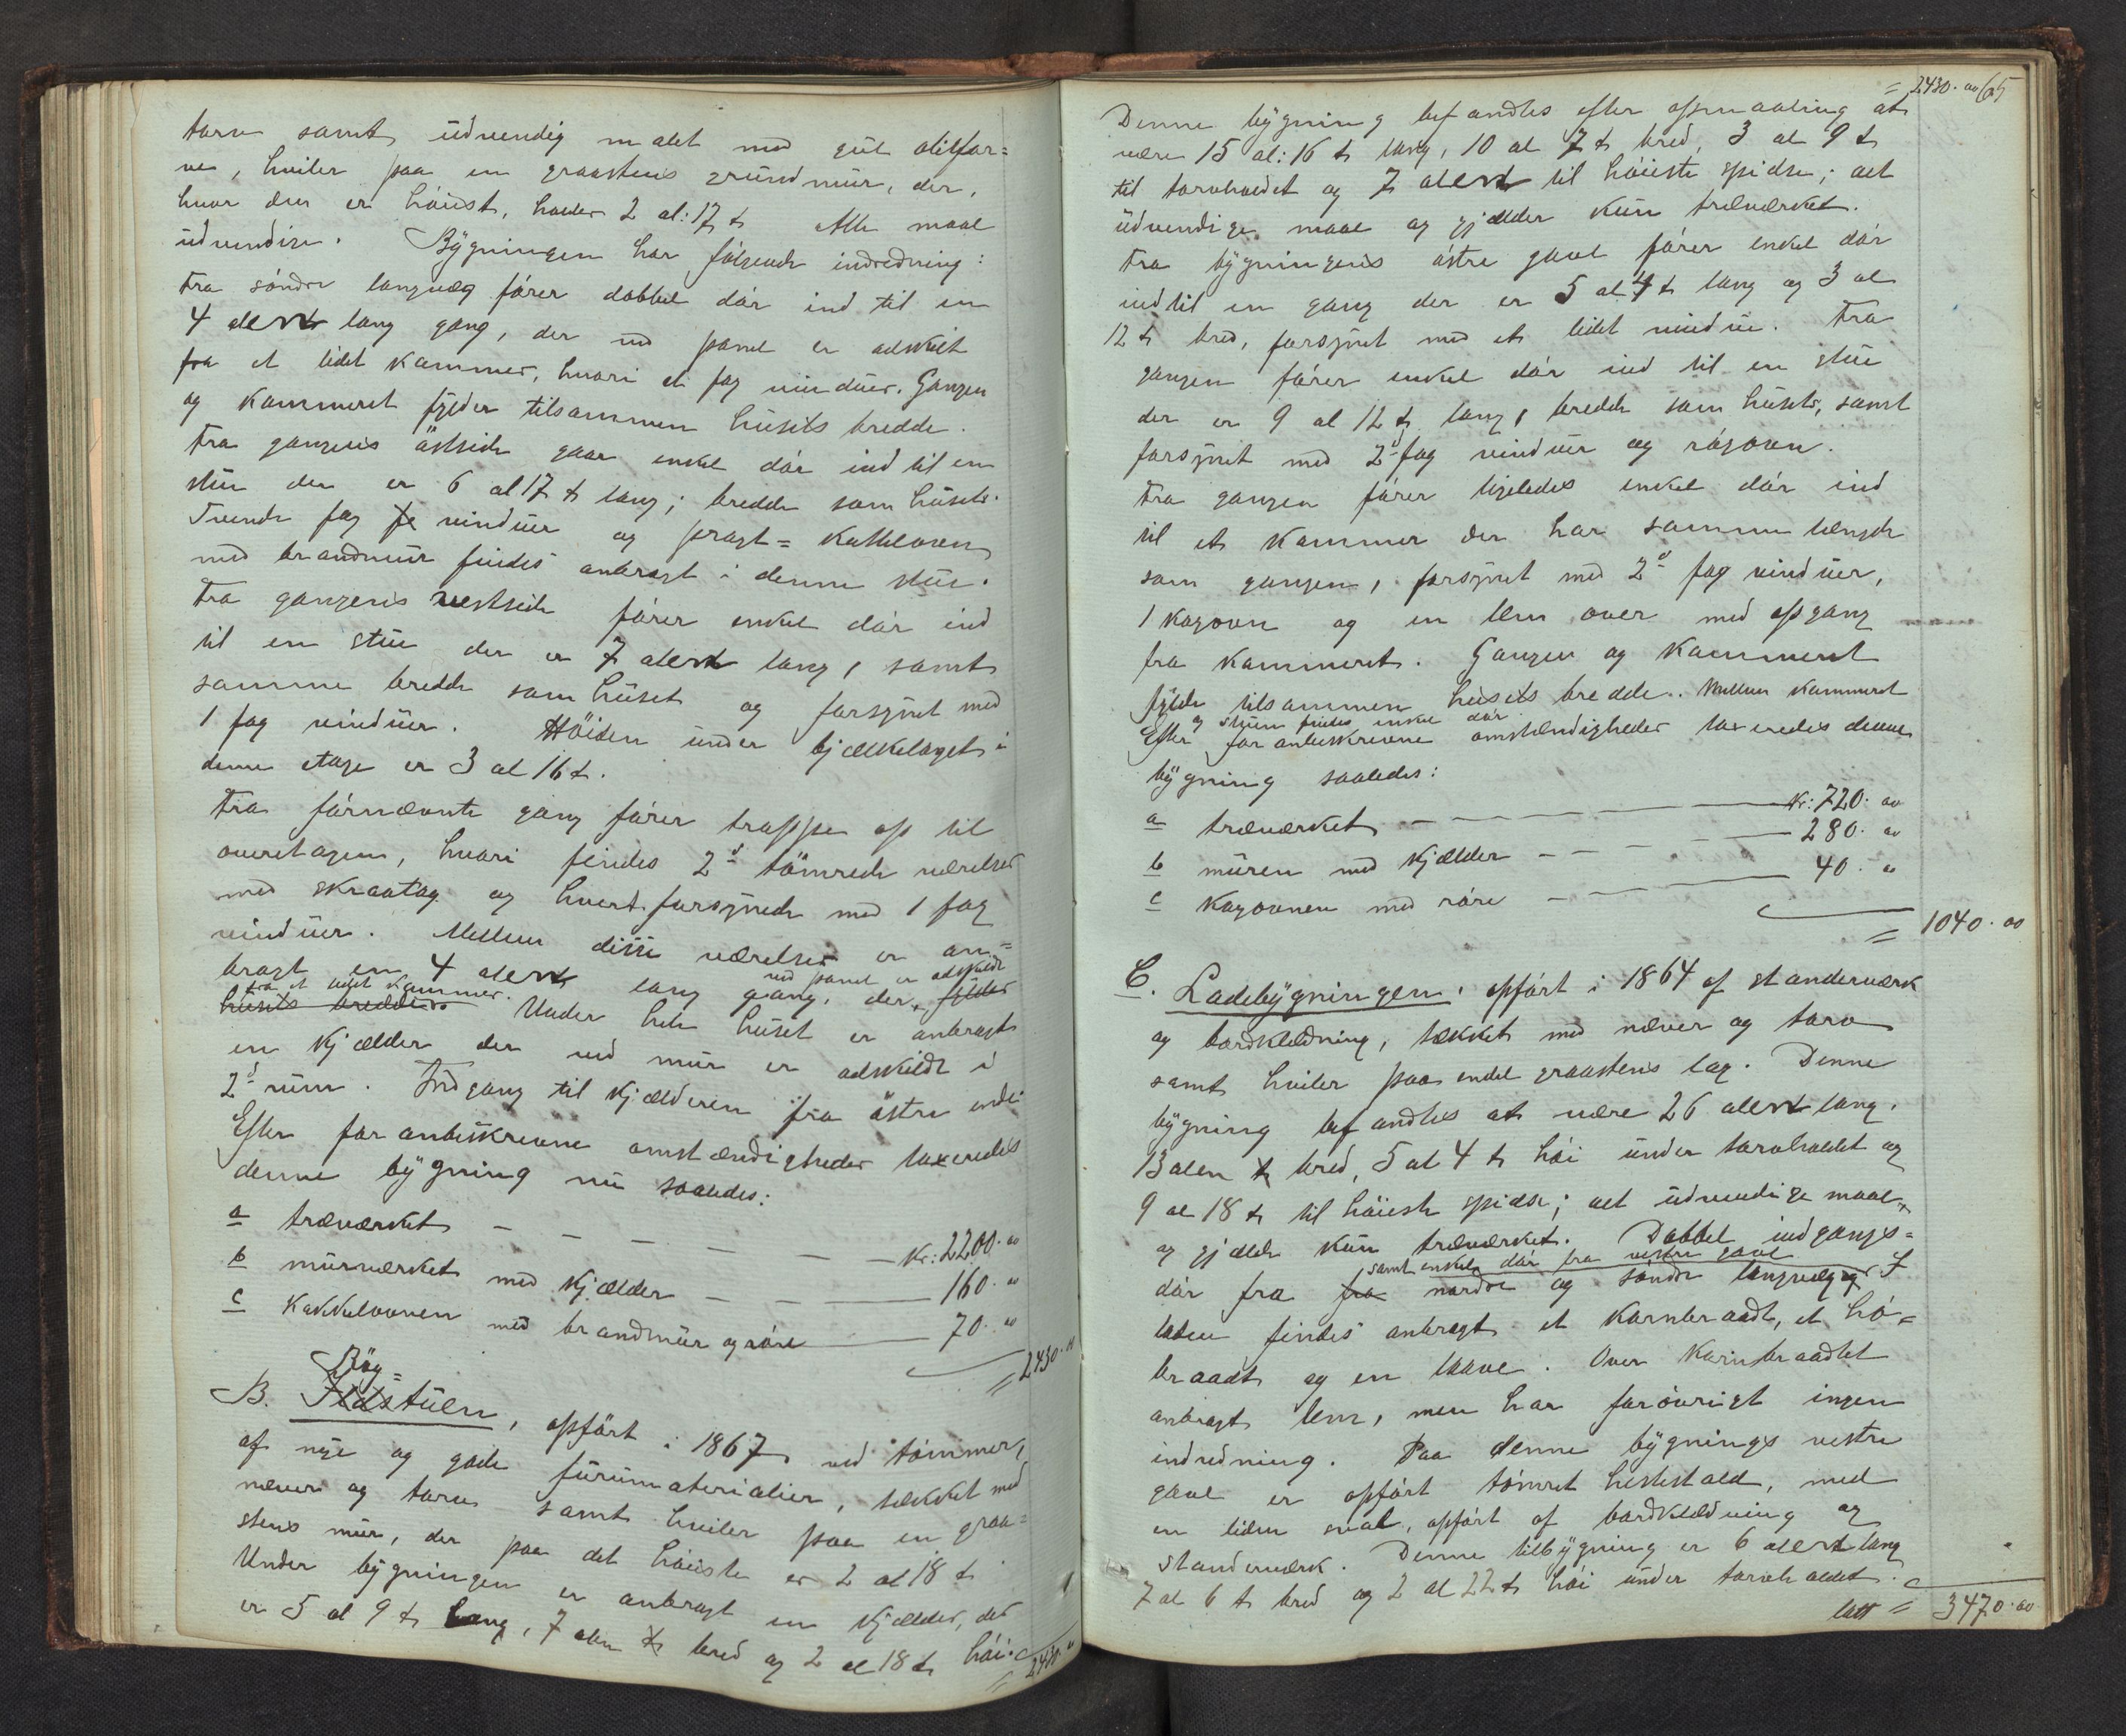 torv samt udvendig malet med gul oliefar=
ve, hviler paa en graastens grundmur, der,
hvor den er höiest, holder 2 al: 17 t. Alle maal
udvendige. Bygningen har fölgende indredning:
Fra söndre langvæg förer dobbel dör ind til en
4 alen lang gang, der ved panel er adskilt
fra et lidet kammer, hvori et fag vinduer. Gangen
og kammeret fylder tilsammen husets bredde.
Fra gangens östside gaar enkel dör ind til en
stue der er 6 al 17 t lang; bredde som husets.
Tvende fag vinduer og pragt=kakkelovn
med brandmur findes anbragt i denne stue.
Fra gangens vestside förer enkel dör ind
til en stue der er 7 alen lang, samt
samme bredde som huset og forsynet med
1 fag vinduer. Höiden under bjælkelaget i
denne etage er 3 al 16 t.
Fra förnævnte gang förer trappe op til
overetagen, hvori findes 2de tömrede værelser
med skraatag og hvert forsynede med 1 fag
vinduer. Mellem disse værelser er an=
bragt en 4 alen lang gang, der, fylder
ved panel er adskildt
fra et lidet kammer.
husets bredde. Under hele huset er anbragt
en kjælder der ved mur er adskildt i
2de rum. Indgang til kjælderen fra östre ende.
Efter foranbeskrevne omstændigheder taxeredes
denne bygning nu saaledes:
a træværket — Kr: 2200.00
b murværket med kjælder — 160.00
c kakkelovnen med brandmur og röre — 70.00
= 2430.00
Bög=
B. Ildstuen, opfört i 1867 ved tömmer,
af nye og gode furumaterialier, tækket med
næver og torv samt hviler paa en graa=
stens mur, der paa det höieste er 2 al 18 t.
Under bygningen er anbragt en kjælder, der
er 5 al 9 t lang, 7 alen t bred og 2 al 18 t höi.
= 2430.00
= 2430.00 65
Denne bygning befandtes efter opmaaling at
være 15 al: 16 t lang, 10 al 7 t bred, 3 al 9 t
til torvholdet og 7 alen til höieste spidse; alt
udvendige maal og gjælder kun træværket.
Fra bygningens östre gavl förer enkel dör
ind til en gang der er 5 al 4 t lang og 3 al
12 t bred, forsynet med et lidet vindue. Fra
gangen förer enkel dör ind til en stue
der er 9 al 12 t lang, bredde som husets, samt
forsynet med 2de fag vinduer og rögovn.
Fra gangen förer ligeledes enkel dör ind
til et kammer der har samme længde
som gangen, forsynet med 2de fag vinduer,
1 kogovn og en lem over med opgang
fra kammeret. Gangen og kammeret
fylde tilsammen husets bredde. Mellem kammeret
og stuen findes enkel dör
Efter foranbeskrevne omstændigheder taxeredes denne
bygning saaledes:
a træværket — Kr: 720.00
b muren med kjælder — 280.00
c kogovnen med röre — 40.00
= 1040.00
C. Ladebygningen, opfört i 1864 af standerværk
og bordklædning, tækket med næver og torv
samt hviler paa endel graastens lag. Denne
bygning befandtes at være 26 alen lang,
13 alen t bred, 5 al 4 t höi under torvholdet og
9 al 18 t til höieste spidse; alt udvendige maal,
og gjælde kun træværket. Dobbel indgangs=
samt enkel dör fra vestre gavl
dör fra fra nordre og söndre langvæg. I
laden findes anbragt et kornbraadt, et hö=
braadt og en laave. Over kornbraadtet
anbragt lem, men har forövrigt ingen
indredning. Paa denne bygnings vestre
gavl er opfört tömret hestestald, med
en liden sval, opfört af bordklædning og
standerværk. Denne tilbygning er 6 alen lang
7 al 6 t bred og 2 al 22 t höi under torvholdet.
latt = 3470.00